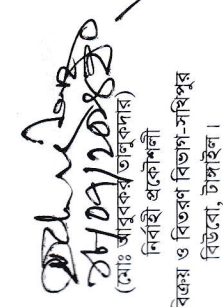 ২৮/০৭/২০৪৩
(মোঃ আবুবকর তালুকদার)
নির্বাহী প্রকৌশলী
বিক্রয় ও বিতরণ বিভাগ-সখিপুর
বিউবো, টাঙ্গাইল।